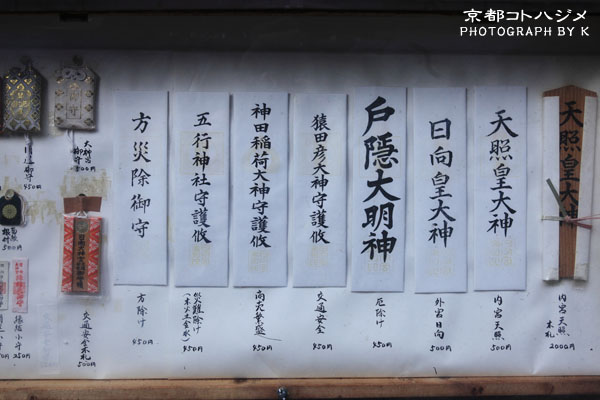 京都コトハジメ
PHOTOGRAPH BY K
天照皇大神
内宮天照
木札
2000円
天照皇大神
内宮天照
500円
日向皇大神
外宮日向
500円
戸隠大明神
厄除け
450円
猿田彦大神守護攸
交通安全
450円
神田稲荷大神守護攸
商売繁盛
450円
五行神社守護攸
災難除け
(木火土金水)
450円
方災除御守
方除け
450円
大神宮
御守
500円
450円
交通安全木札
500円
根付
500円
350円
250円